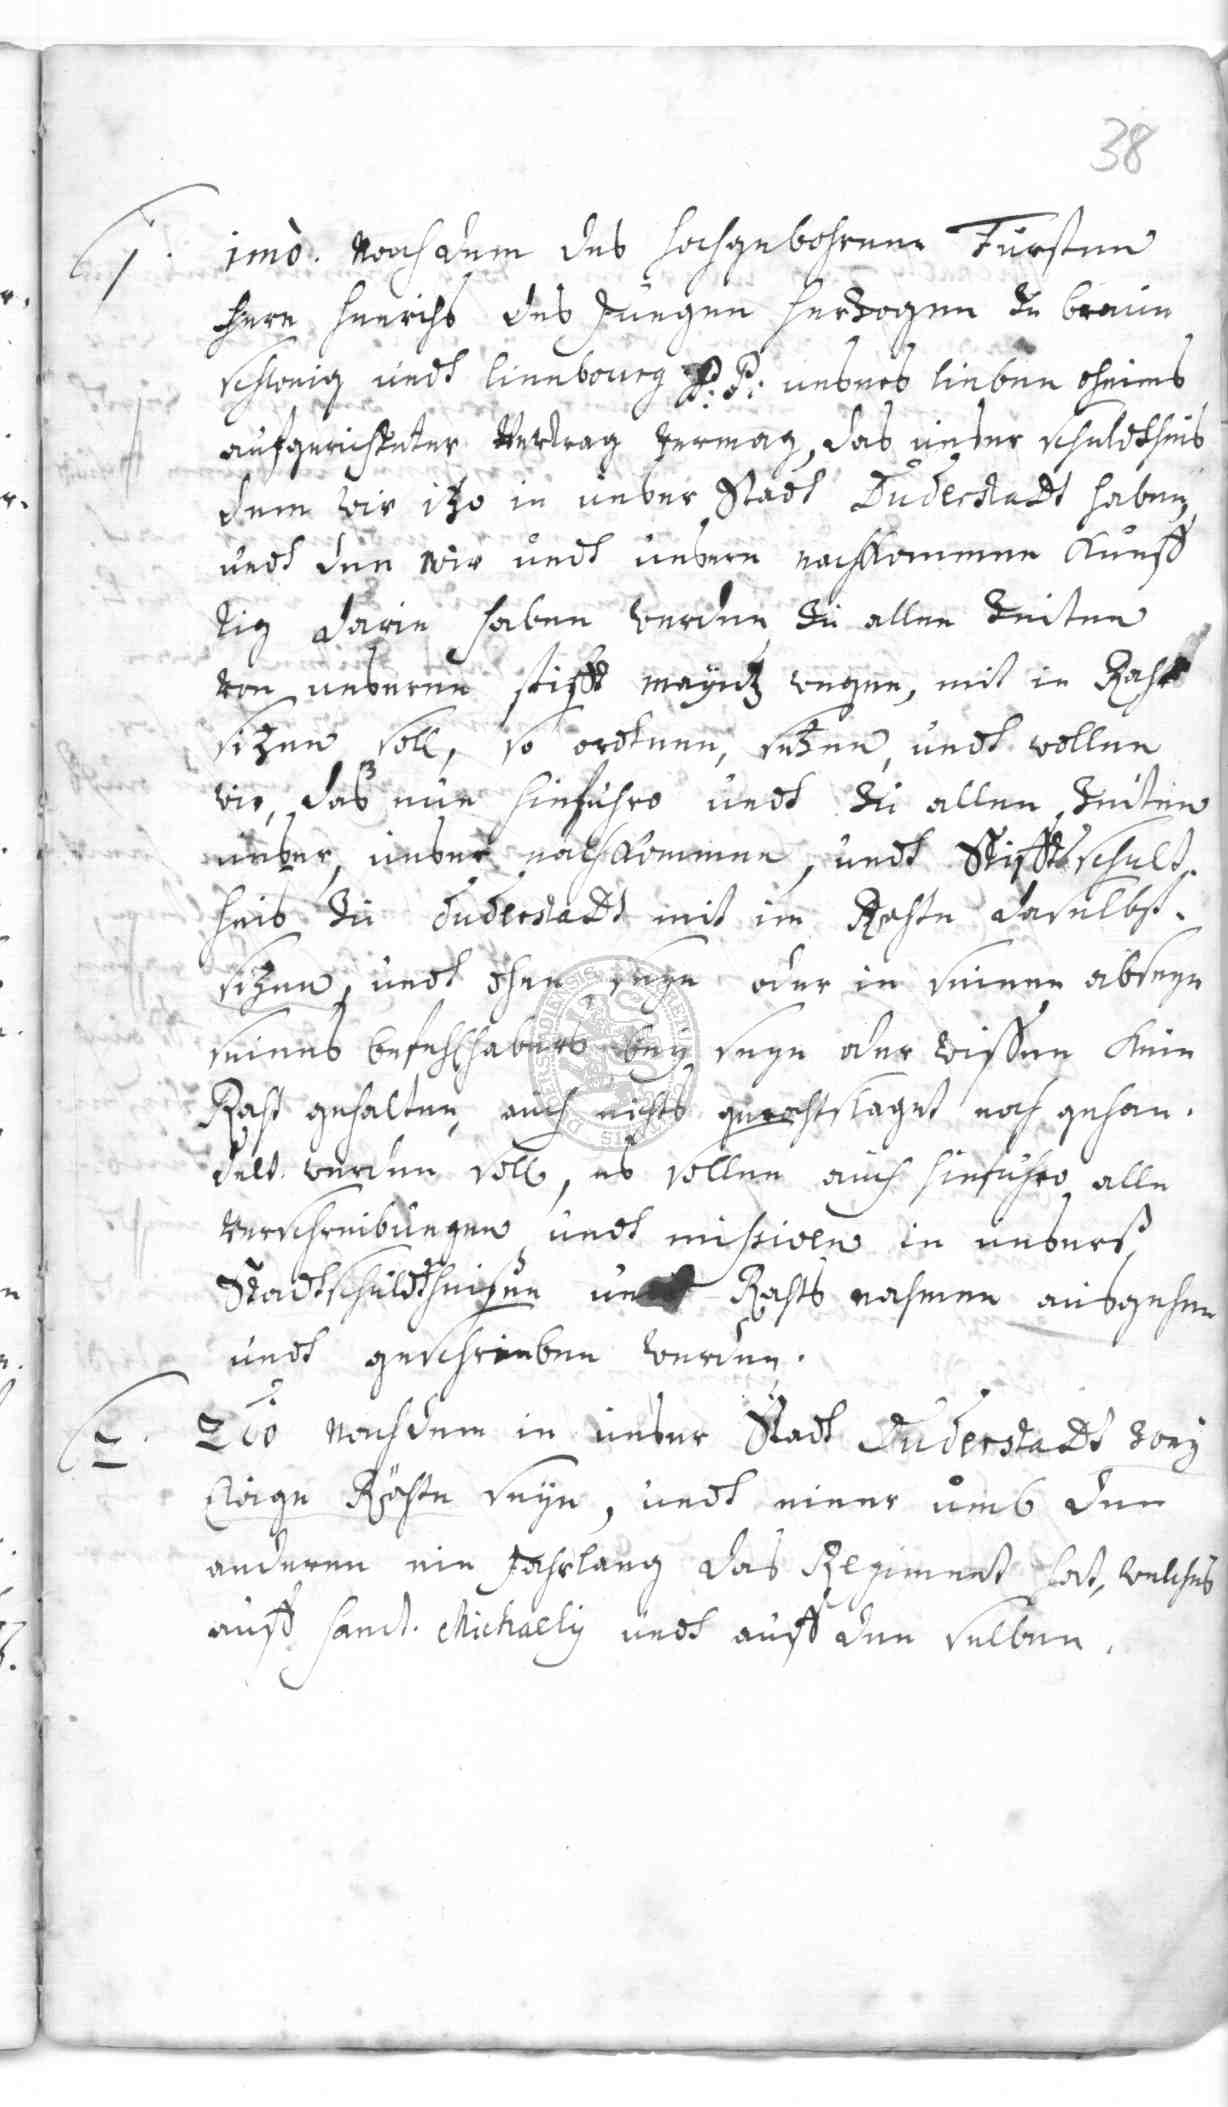 38
§ 1. 1mò. Nachdem des hochgebohrnen Fürsten
Hern Heerichs des Jüngen Hertzogen zu braun
schweig undt lüneb̄ourg P: P: unsers lieben oheims
aufgerichteter Vertrag vermag, das unser schuldtheis
dem wir itzo in unser Stadt Duderstadt haben,
undt den wir undt unsere nachkommen Künff
tig darin haben werden zu allen Zeiten
von unseren stifft mayntz wegen, mit in Raht
sitzen soll, so ordtnen, setzen, undt wollen
wir, daß nun hinführo undt zu allen Zeiten
unser, unser nachkommen, undt Stifftsschult
heis zu duderstadt mit im Rahte daselbst
sitzen, undt ohne seyn oder in seinen abseyn
seines befehlhabers bey seyn oder wissen Kein
Raht gehalten, auch nichts gerahtslaget noch gehan.
delt werden soll, es sollen auch hinführo alle
Verschreibungen undt missiven in unsers
Stadtschuldtheisen undt Rahts nahmen ausgehen
undt geschrieben werden.
§ 2. 2dò Nachdem in unser Stadt Duderstadt zwey
Rähte seyn, undt einer umb den
anderen ein Jahrlang das Regiment hat, welches
auff sanct. Michaely undt auff den selben